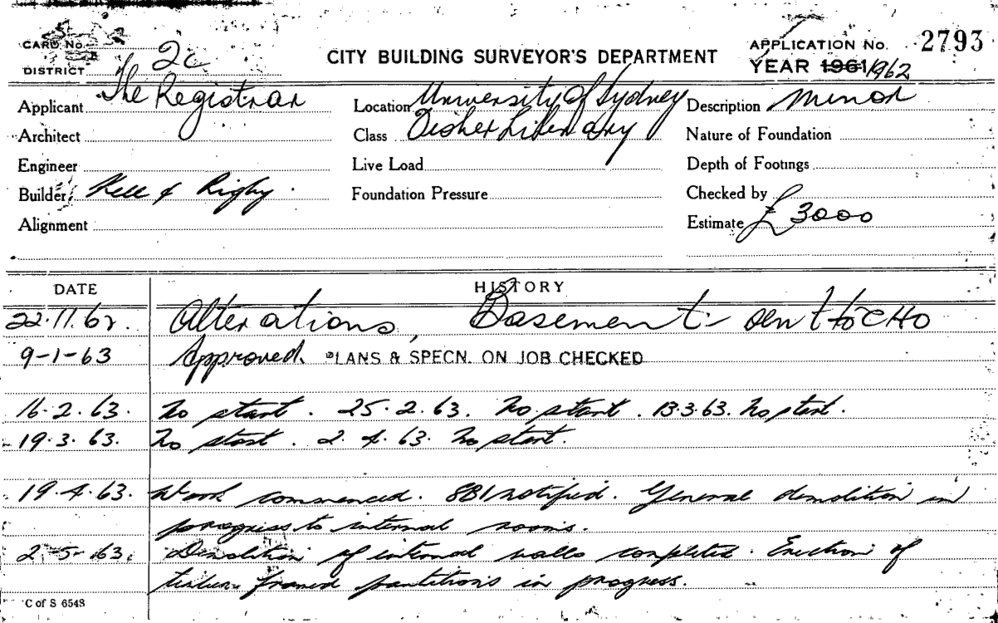 CARD No.
DISTRICT 2c
CITY BUILDING SURVEYOR'S DEPARTMENT
APPLICATION No. 2793
YEAR 1961/1962
Applicant The Registrar
Location University of Sydney
Description Minor
Architect
Class Fisher Library
Nature of Foundation
Engineer
Live Load
Depth of Footings
Builder Kell & Rigby.
Foundation Pressure
Checked by
Alignment
Estimate £3000
DATE HISTORY
22.11.62. Alterations, Basement - sent to CHO
9-1-63 Approved. PLANS & SPECN. ON JOB CHECKED
16.2.63. No start. 25.2.63. No start. 13.3.63. No start.
19.3.63. No start. 2.4.63. No start.
19.4.63. Work commenced. 881 notified. General demolition in
progress to internal rooms.
2-5-63. Demolition of internal walls completed. Erection of
timber framed partitions in progress.
C of S 6543